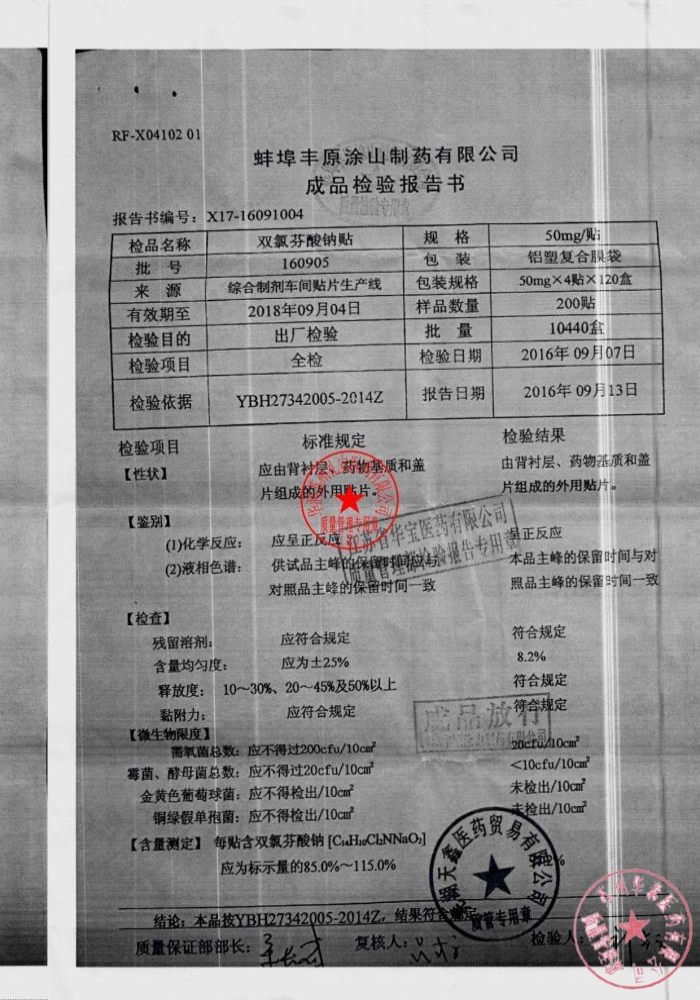 RF-X04102 01
蚌埠丰原涂山制药有限公司
成品检验报告书
报告书编号：X17-16091004
检品名称 双氯芬酸钠贴 规 格 50mg/贴
批 号 160905 包 装 铝塑复合膜袋
来 源 综合制剂车间贴片生产线 包装规格 50mg×4贴×120盒
有效期至 2018年09月04日 样品数量 200贴
检验目的 出厂检验 批 量 10440盒
检验项目 全检 检验日期 2016年 09月07日
检验依据 YBH27342005-2014Z 报告日期 2016年 09月13日
检验项目 标准规定 检验结果
【性状】 应由背衬层、药物基质和盖 由背衬层、药物基质和盖
片组成的外用贴片。 片组成的外用贴片。
【鉴别】
(1)化学反应： 应呈正反应 呈正反应
(2)液相色谱： 供试品主峰的保留时间应与 本品主峰的保留时间与对
对照品主峰的保留时间一致 照品主峰的保留时间一致
江苏省华宝医药有限公司
质量管理部检验报告专用章
质量管理专用章
【检查】
残留溶剂： 应符合规定 符合规定
含量均匀度： 应为±25% 8.2%
释放度： 10～30%、20～45%及50%以上 符合规定
黏附力： 应符合规定 符合规定
成品放行
【微生物限度】
需氧菌总数：应不得过200cfu/10cm² 20cfu/10cm²
霉菌、酵母菌总数：应不得过20cfu/10cm² <10cfu/10cm²
金黄色葡萄球菌：应不得检出/10cm² 未检出/10cm²
铜绿假单孢菌：应不得检出/10cm² 未检出/10cm²
【含量测定】 每贴含双氯芬酸钠 [C₁₄H₁₀Cl₂NNaO₂]
应为标示量的85.0%～115.0% %
天鑫医药贸易有限公司
质管专用章
结论：本品按YBH27342005-2014Z，结果符合规定
质量保证部部长： 复核人： 检验人